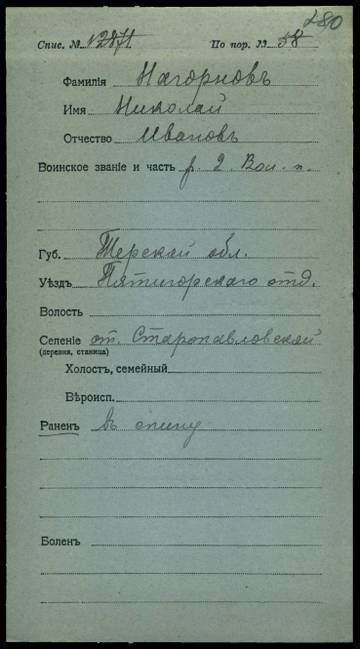 280
Спис. № 12871 По пор. № 58
Фамилія Нагорновъ
Имя Николай
Отчество Ивановъ
Воинское званіе и часть р. 2 Вол. п.
Губ. Терской обл.
Уѣздъ Пятигорскаго отд.
Волость
Селеніе ст. Старопавловской
(деревня, станица)
Холостъ, семейный
Вѣроисп.
Раненъ въ спину
Боленъ